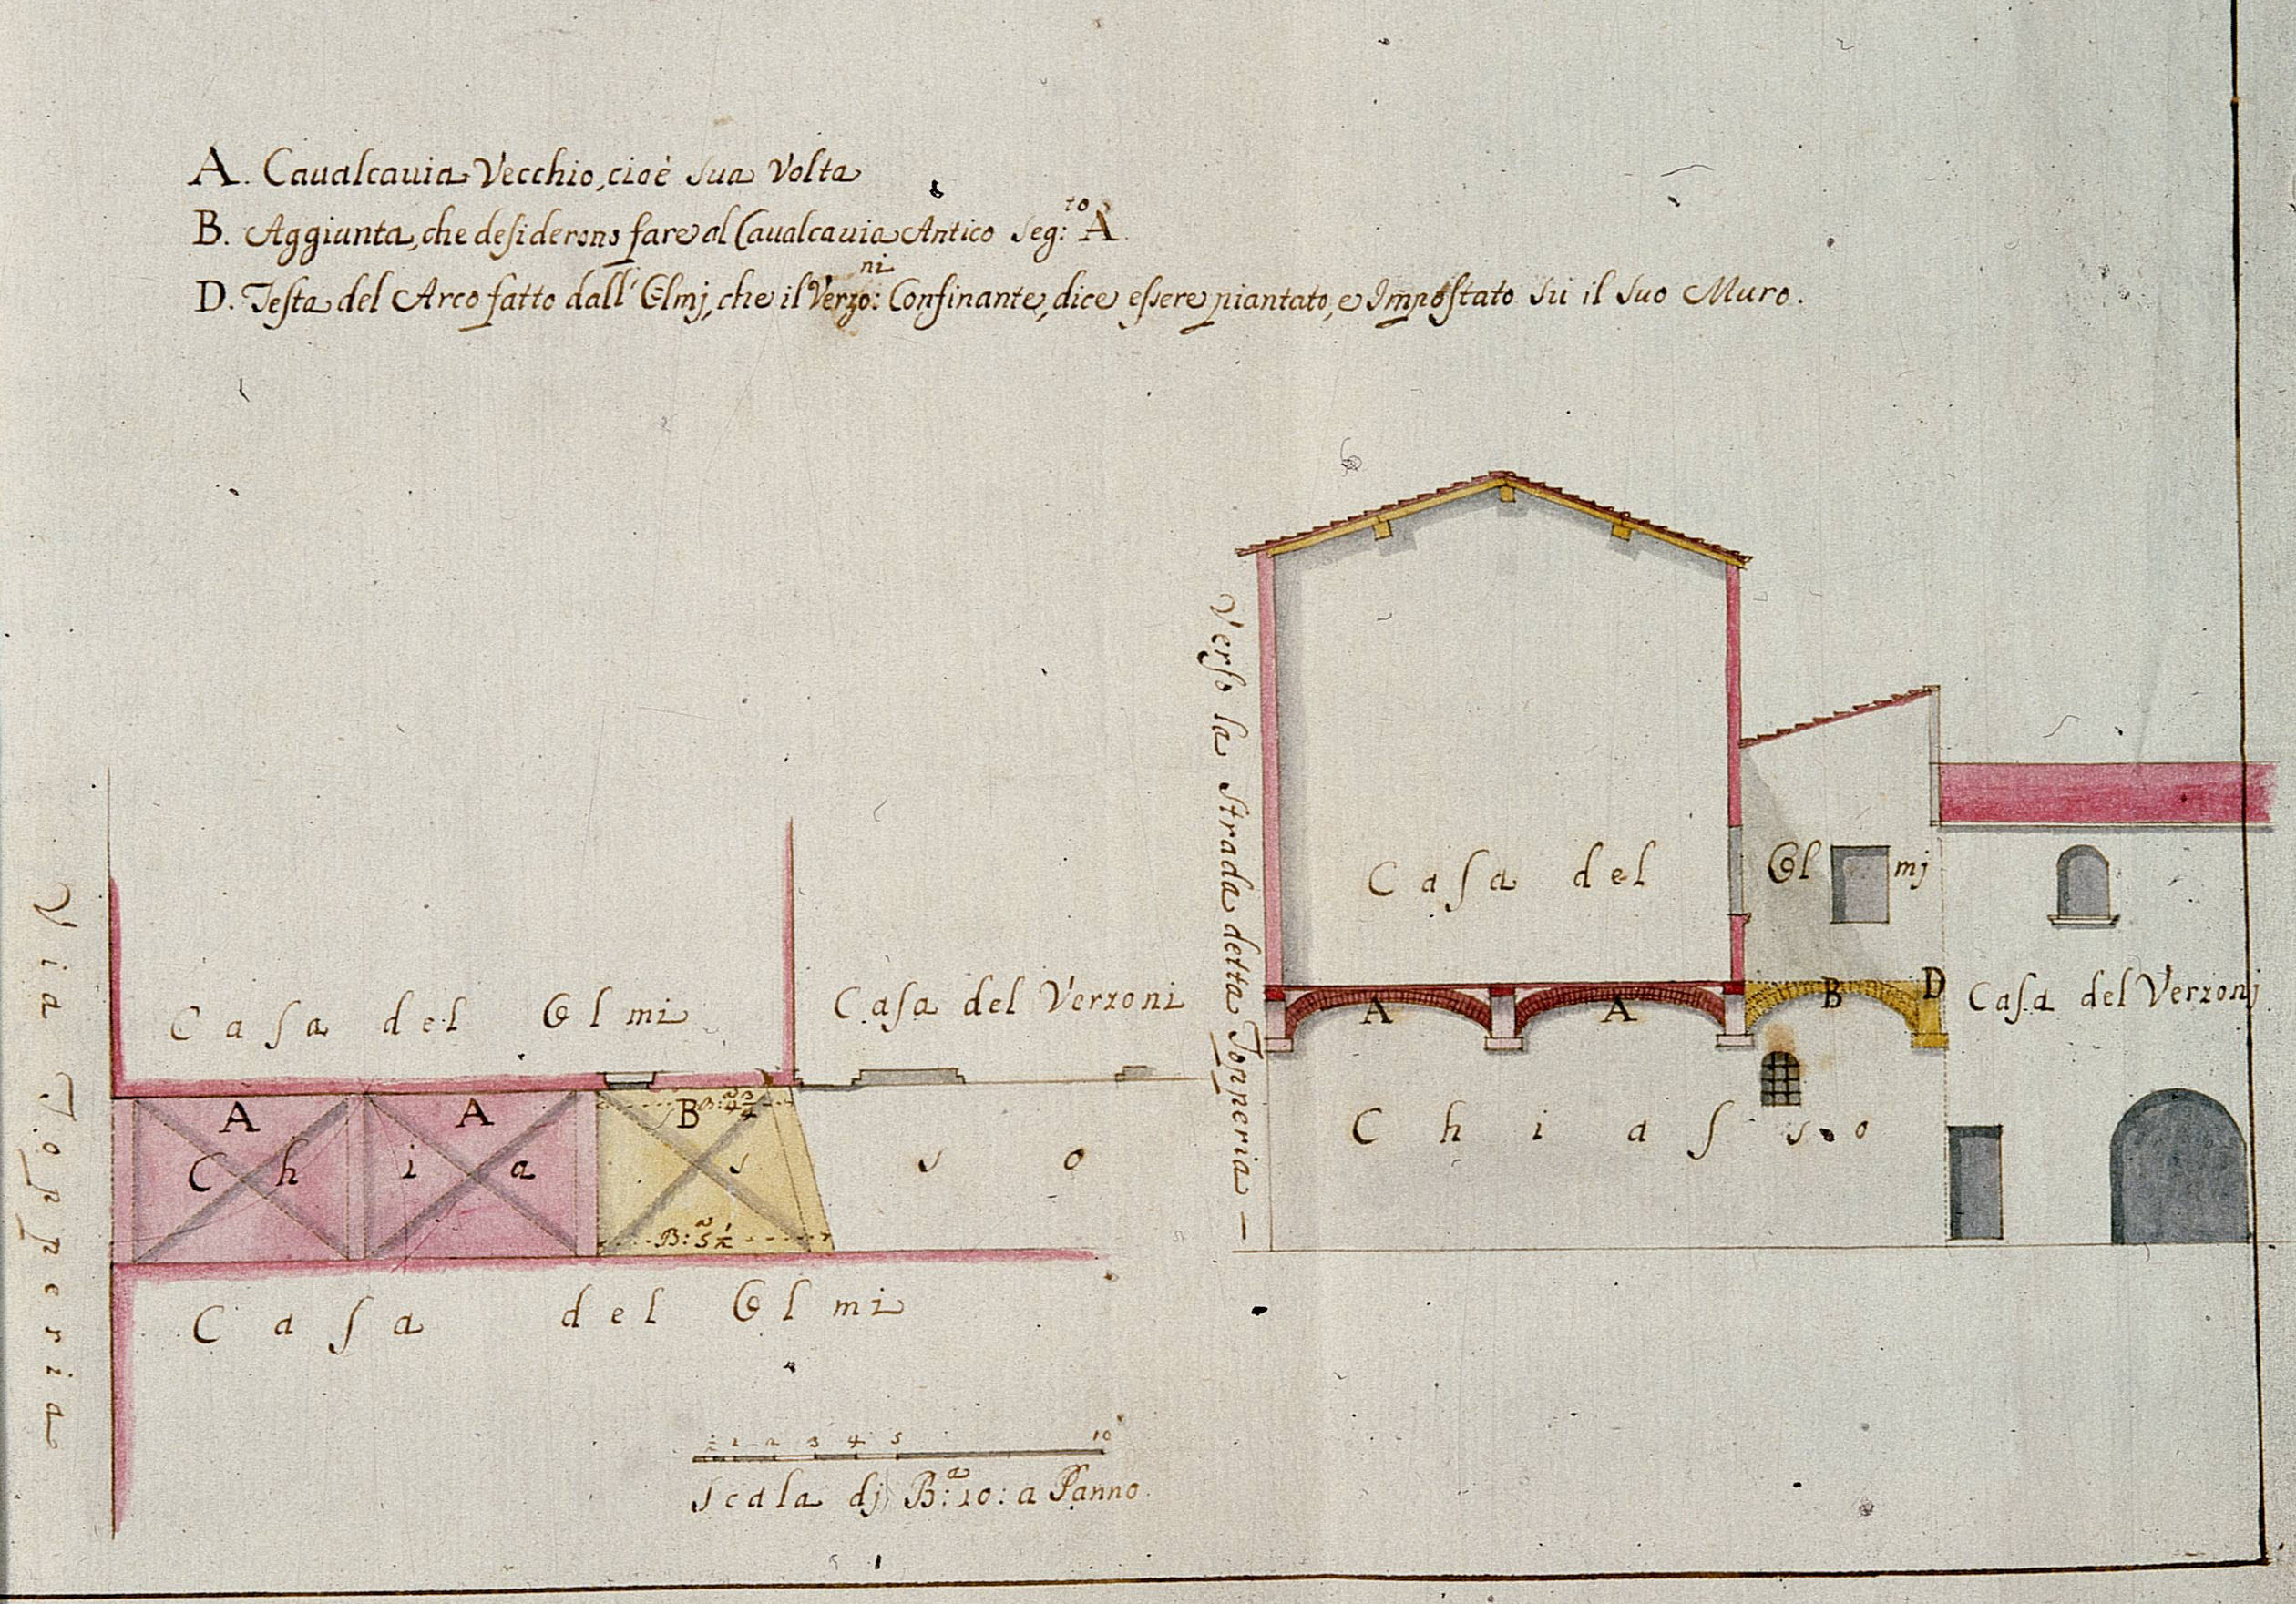 A. Caualcauia Vecchio, cioè sua Volta
B. Aggiunta, che desiderono fare al Caualcauia Antico Seg:to A.
D. Testa del Arco fatto dall' Elmj, che il Verzo:ni Confinante, dice essere piantato, e Impostato su il suo Muro.
Via Topperia
Casa del Elmi
Casa del Verzoni
A
A
B
B:a 4 3/4
Chiasso
B:a 5 1/2
Casa del Elmi
1 2 3 4 5 10
Scala dj B:a 10: a Panno
Verso la Strada detta Topperia
Casa del Elmj
A
A
B
D
Casa del Verzonj
Chiasso